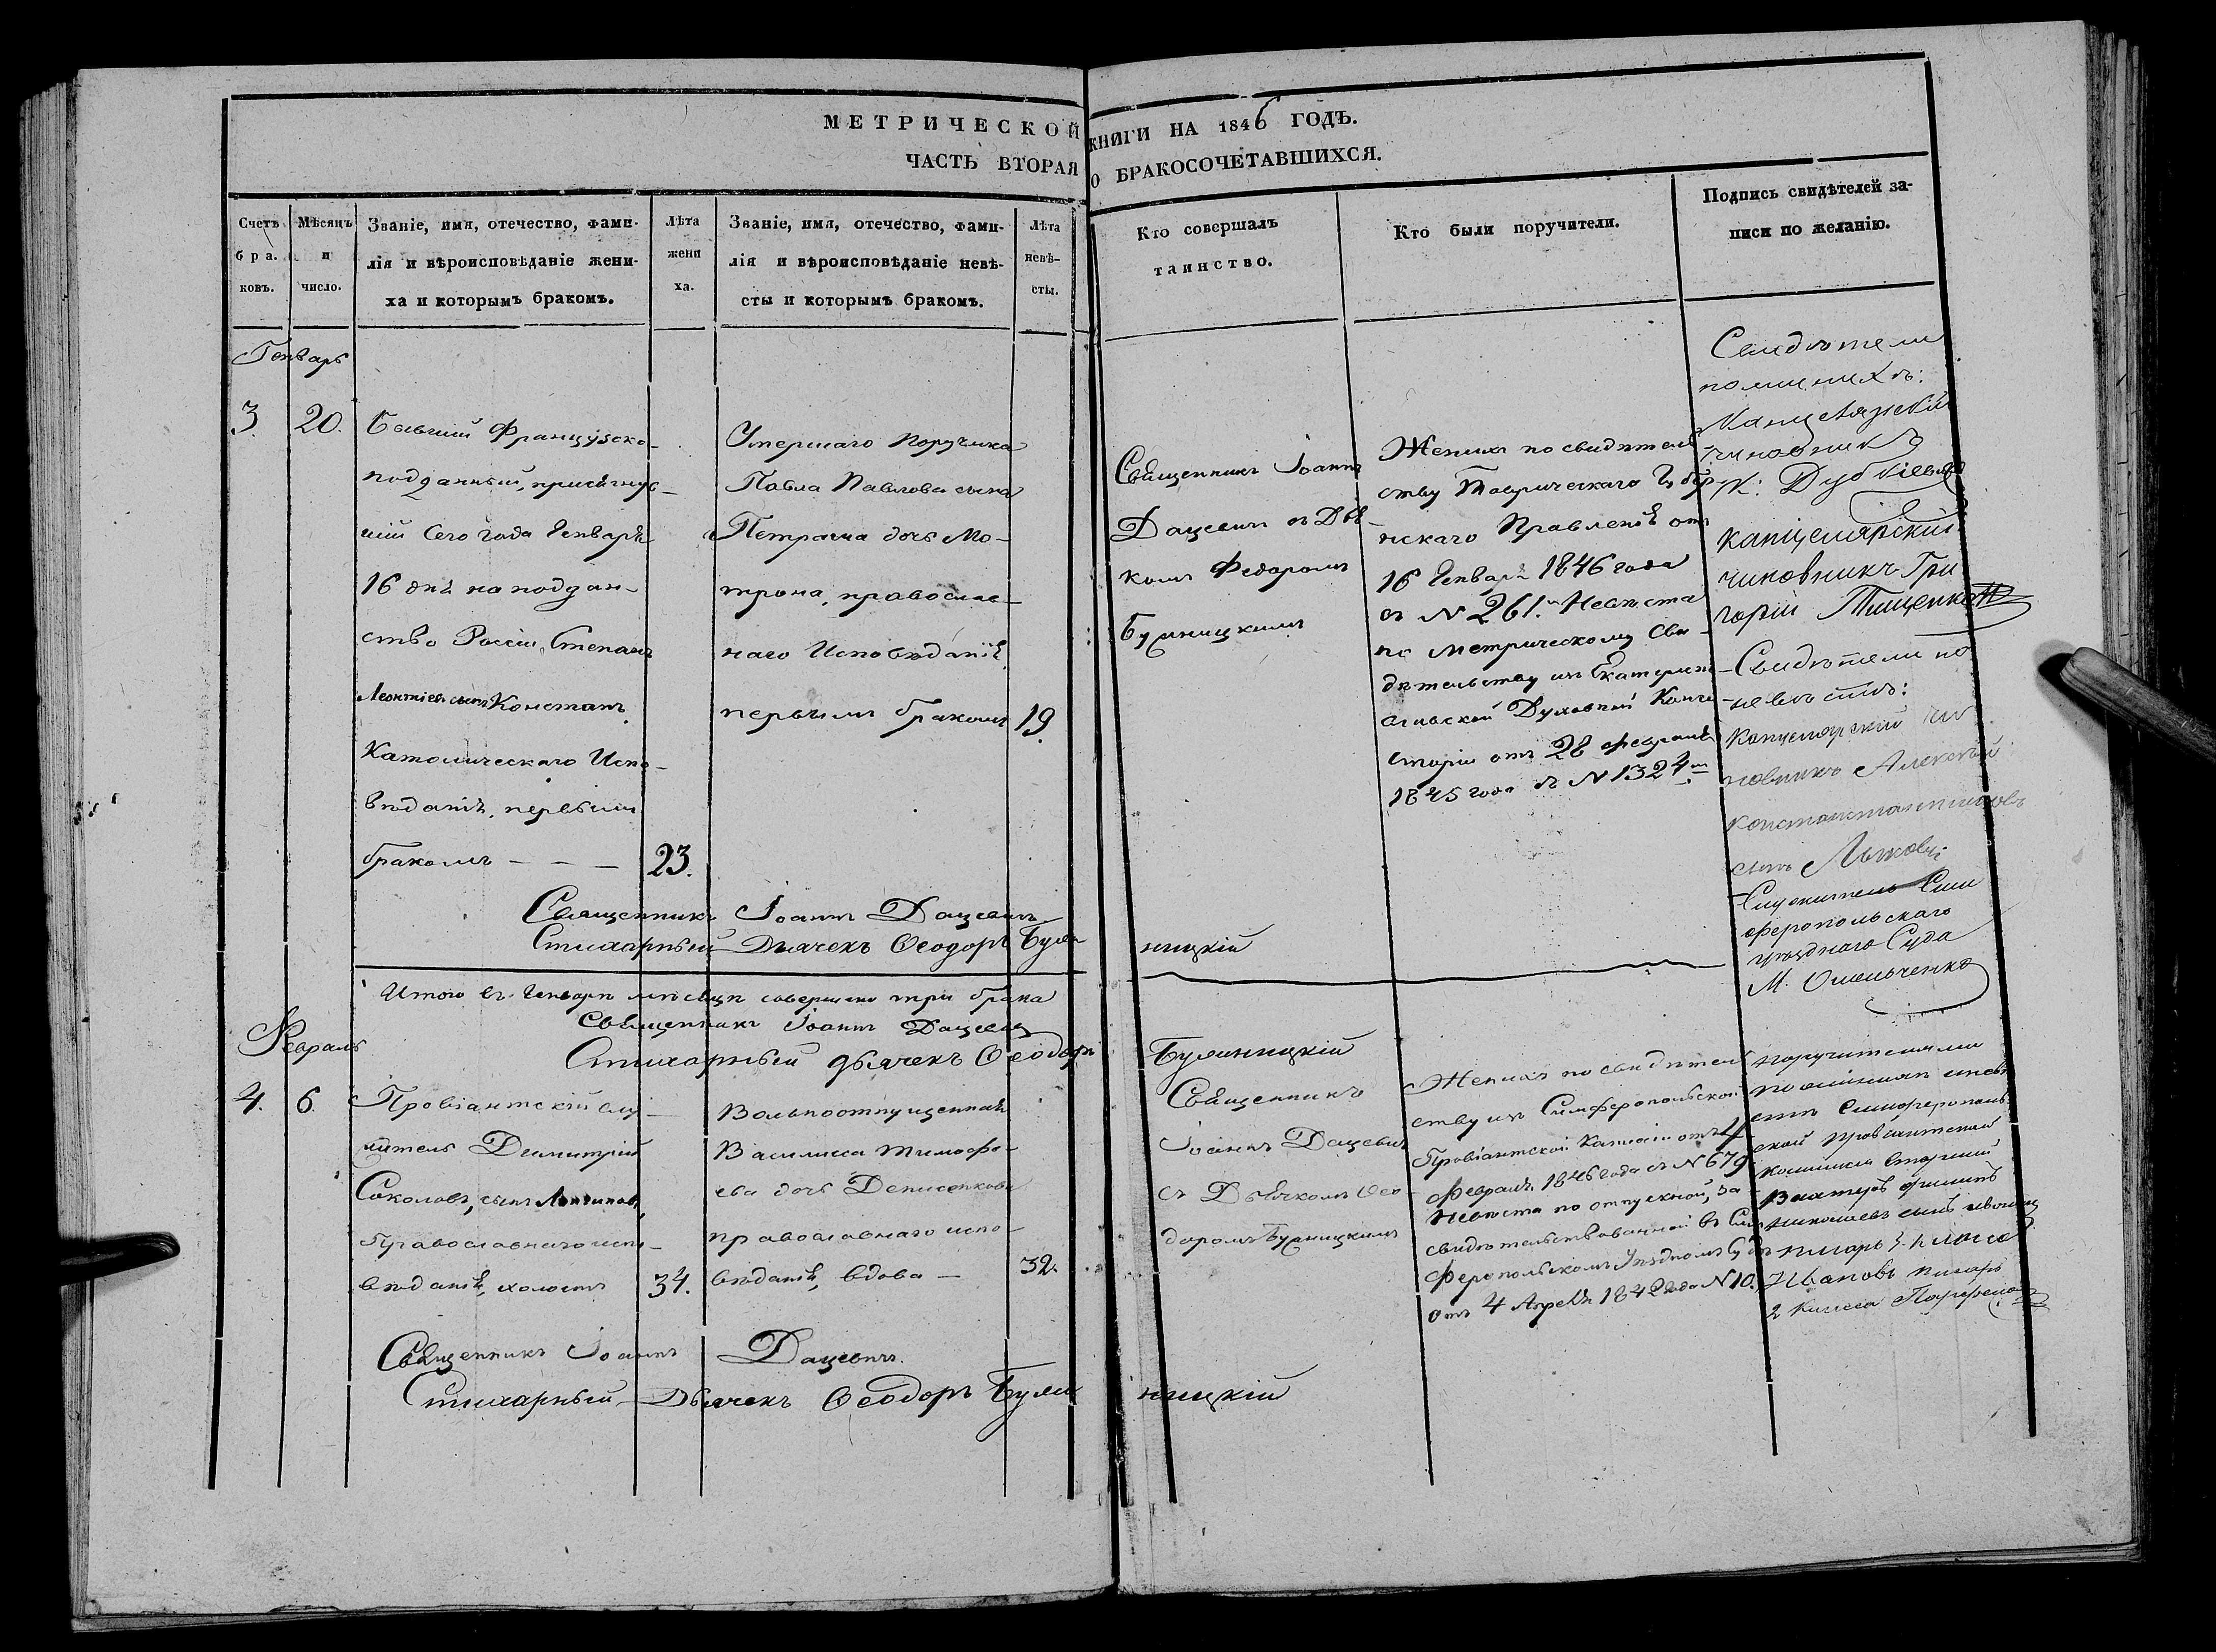 МЕТРИЧЕСКОЙ КНИГИ НА 1846 ГОДЪ.
ЧАСТЬ ВТОРАЯ О БРАКОСОЧЕТАВШИХСЯ.
Счетъ
бра.
ковъ.
Мѣсяцъ
и
число.
Званіе, имя, отечество, фами-
лія и вѣроисповѣданіе жени-
ха и которымъ бракомъ.
Лѣта
жени
ха.
Званіе, имя, отечество, фами-
лія и вѣроисповѣданіе невѣ-
сты и которымъ бракомъ.
Лѣта
невѣ-
сты.
Кто совершалъ
таинство.
Кто были поручители.
Подпись свидѣтелей за-
писи по желанію.
Генварь
3. 20.
Бывшій Французско-
подданный, присягнув-
шій сего года Генваря
16 дня на поддан-
ство Россіи, Степанъ
Леонтіевъ сынъ Констанъ
Католическаго Испо-
вѣданія, первымъ
бракомъ - - - 23.
Умершаго Поручика
Павла Павлова сына
Петраша дочь Мо-
трона, православ-
наго Исповѣданія
первымъ бракомъ 19.
Священникъ Іоаннъ
Дацевичъ съ Дьяч-
комъ Федоромъ
Булницкимъ
Женихъ по свидѣтель
ству Таврическаго Губер
нскаго Правленія отъ
16 Генваря 1846 года
съ N 261. Невѣста
по метрическому Сви-
дѣтельству изъ Екатерино
славской Духовной Конси
сторіи отъ 28 февраля
1845 года съ N 1324
Свидѣтели
по женихѣ:
Канцелярскій
чиновникъ
К: Дубкіевъ
Канцелярскій
чиновникъ Гри
горій Тищенко
Свидѣтели по
невѣстѣ:
Канцелярскій чи
новникъ Алексѣй
Константиновъ
сынъ
Служитель Сим
феропольскаго
уѣзднаго Суда
М. Омельченко
Священникъ Іоаннъ Дацевичъ
Стихарный Дьячекъ Ѳеодоръ Були
ницкій
Итого въ Генварѣ мѣсяцѣ совершено три брака
Священникъ Іоаннъ Дацевичъ
Стихарный дьячекъ Ѳеодоръ
Булиницкій
Февраль
4. 6.
Провіантскій слу-
житель Димитрій
Соколовъ, сынъ Логиновъ
Православнаго испо-
вѣданія, холостъ 34.
Вольноотпущенная
Василиса Тимофе-
ева дочь Денисенкова
православнаго испо-
вѣданія, вдова - 32.
Священникъ
Іоаннъ Дацевичъ
съ Дьячкомъ Ѳео-
доромъ Булницкимъ
Женихъ по свидѣтель
ству изъ Симферопольской
Провіантской Комисіи отъ 4
Февраля 1846 года съ N 679
Невѣста по отпускной, за-
свидѣтельствованной въ Сим
феропольскомъ Уѣздномъ Судѣ
отъ 4 Апрѣля 184 года N 10.
поручителями
по женихѣ и невѣ
стѣ Симферополь
ской провіантской
комисіи старшій
Вахтеръ
Николаевъ сынъ
писарь класса
Ивановъ писарь
2 класса
Священникъ Іоаннъ Дацевичъ.
Стихарный Дьячекъ Ѳеодоръ Були
ницкій